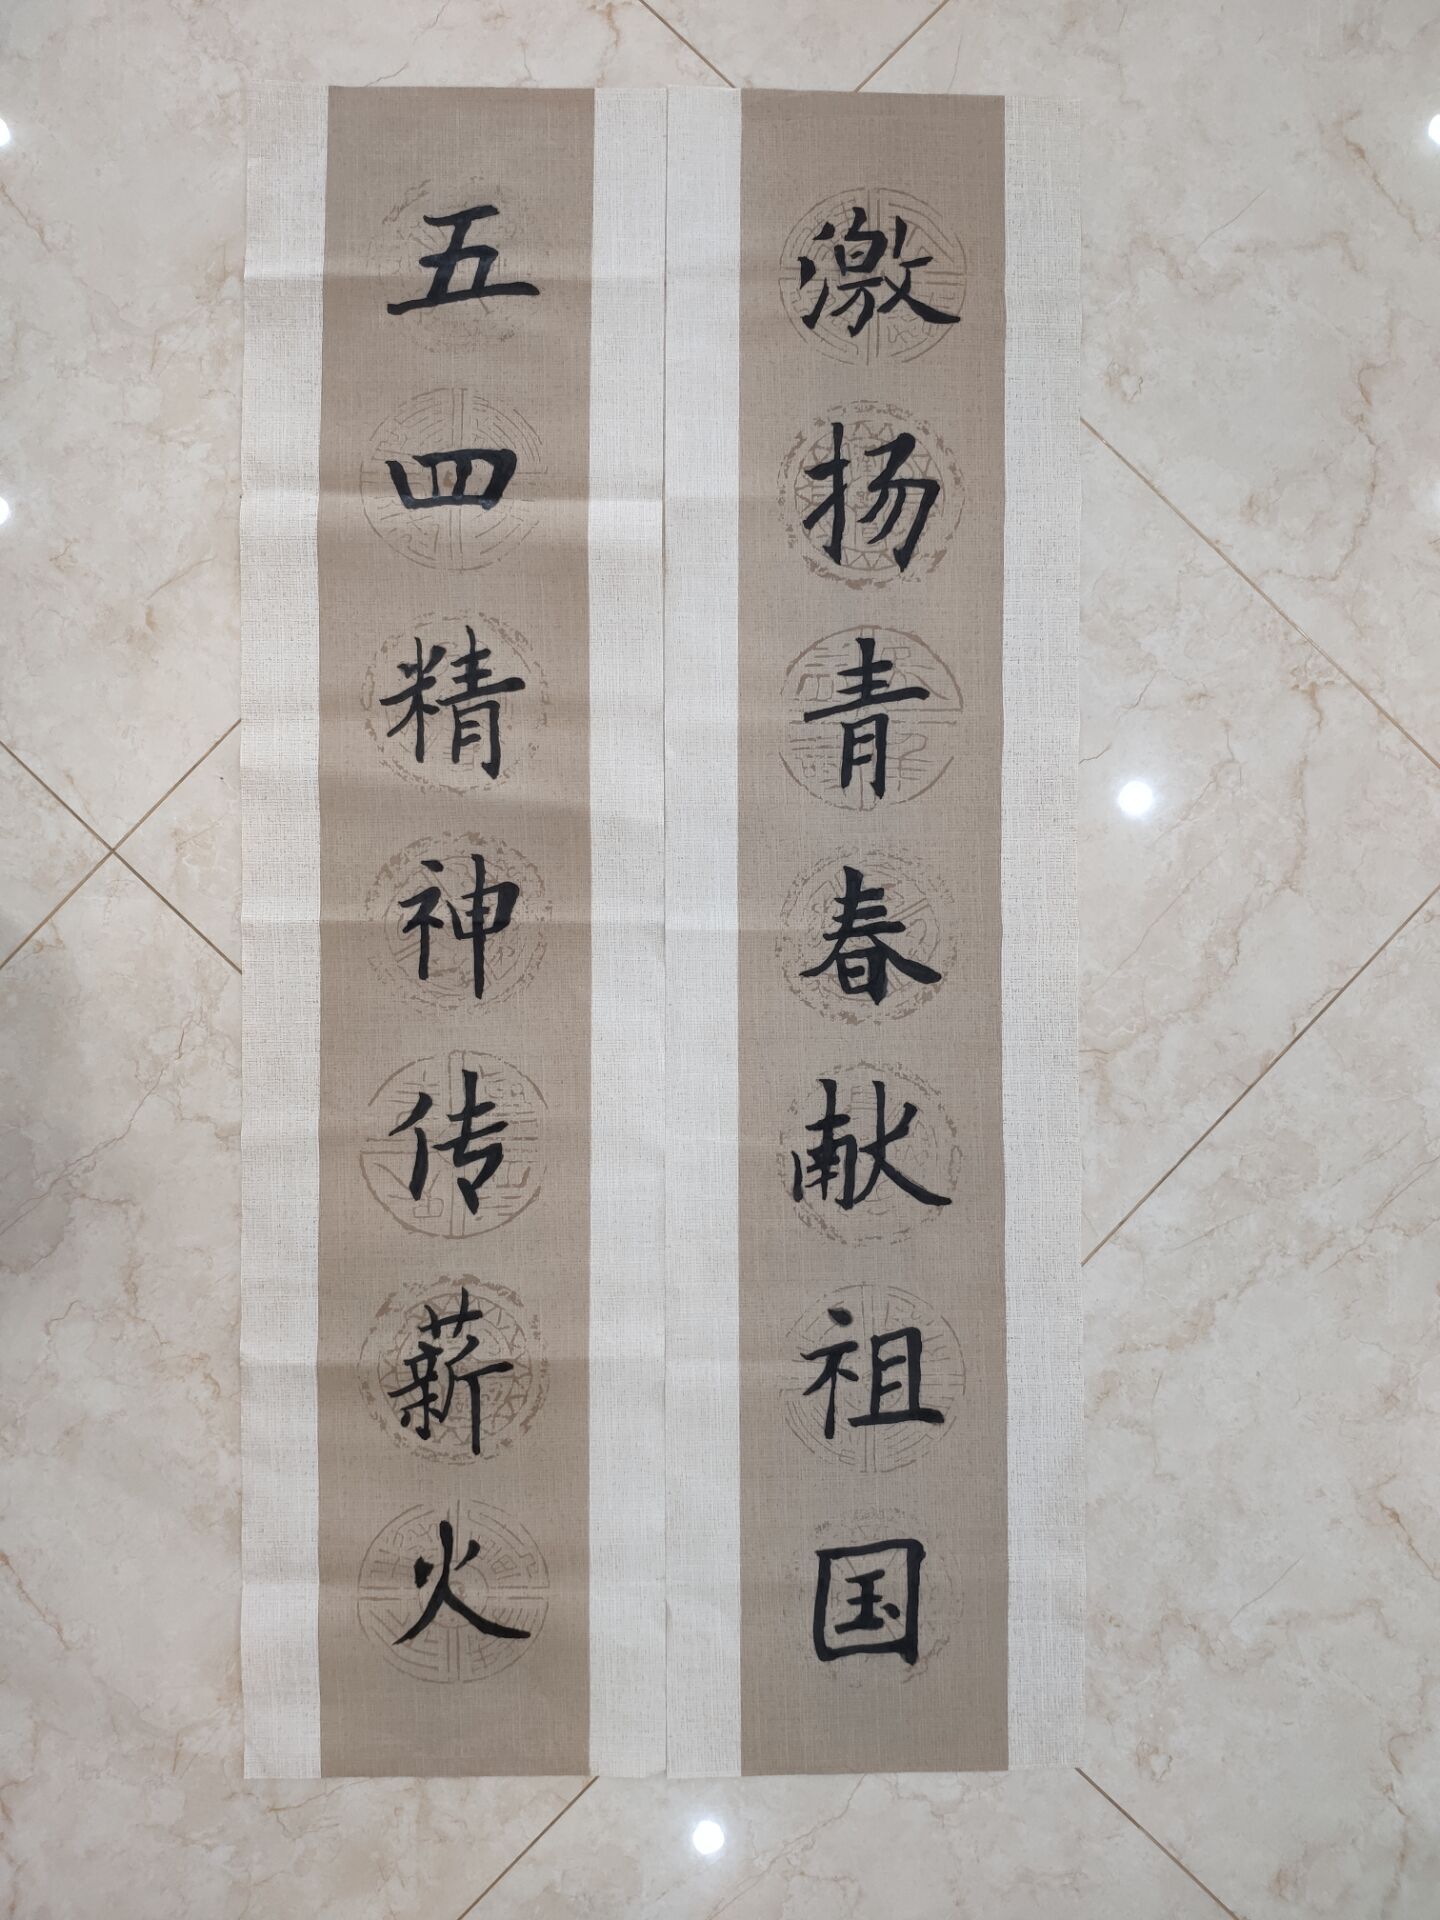 激扬青春献祖国
五四精神传薪火